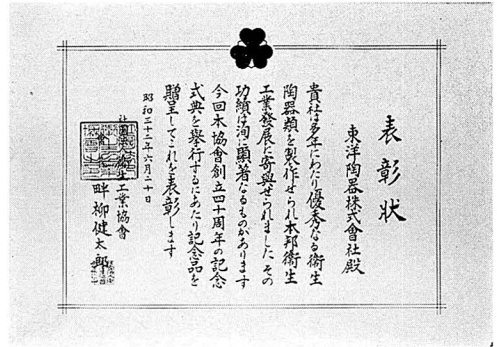 表彰状
東洋陶器株式會社殿
貴社は多年にわたり優秀なる衞生
陶器類を製作せられ本邦衞生
工業發展に寄與せられました その
功績は洵に顕著なるものがあります
今回本協會創立四十周年の記念
式典を擧行するにあたり記念品を
贈呈してこれを表彰します
昭和三十二年六月二十日
社団法人衞生工業協會
畔柳健太郎